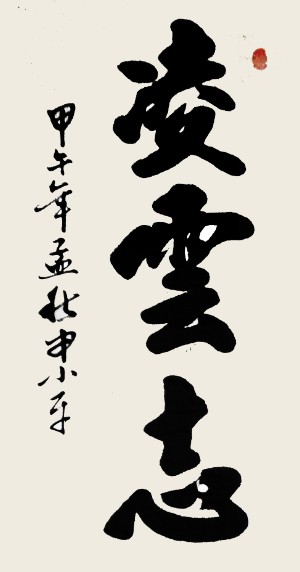 凌雲志
甲午年孟秋申小平